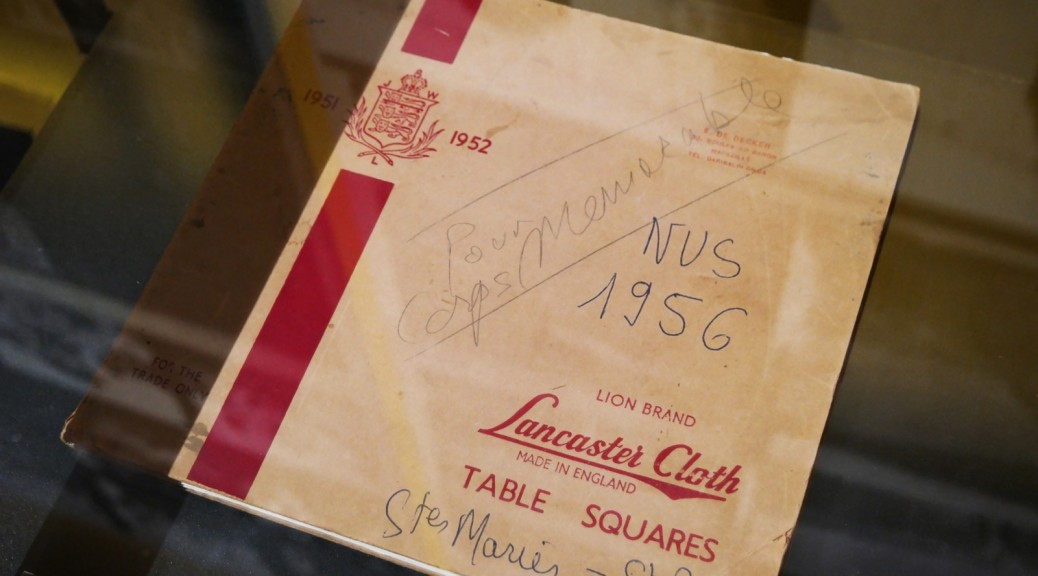 1951
J W
L
1952
E. DE DECKER
Pour
Corps
NUS
1956
FOR THE
TRADE ONLY
LION BRAND
Lancaster Cloth
MADE IN ENGLAND
TABLE SQUARES
Stes Maries -